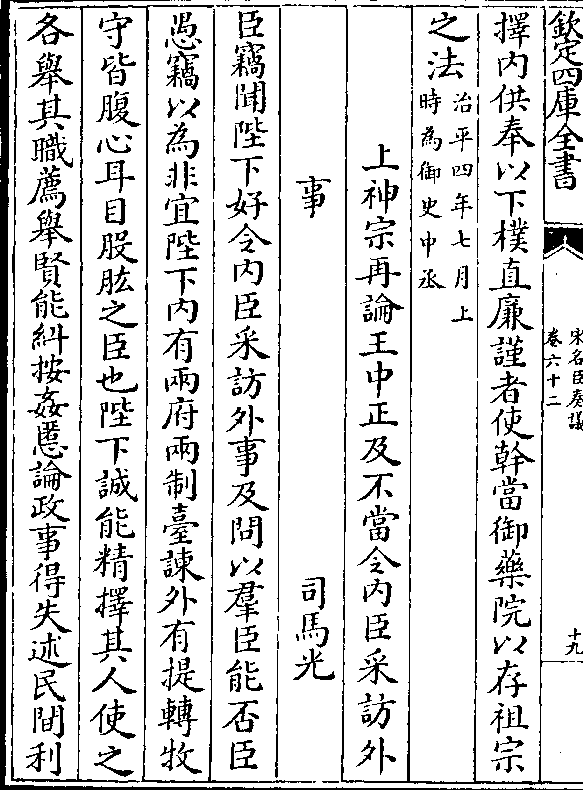 欽定四庫全書
宋名臣奏議
卷六十二
十九
擇内供奉以下樸直廉謹者使幹當御藥院以存祖宗
之法
治平四年七月上
時為御史中丞
上神宗再論王中正及不當令内臣采訪外
事
司馬光
臣竊聞陛下好令内臣采訪外事及問以羣臣能否臣
愚竊以為非宜陛下内有兩府兩制臺諫外有提轉牧
守皆腹心耳目股肱之臣也陛下誠能精擇其人使之
各舉其職薦舉賢能糾按姦慝論政事得失述民間利